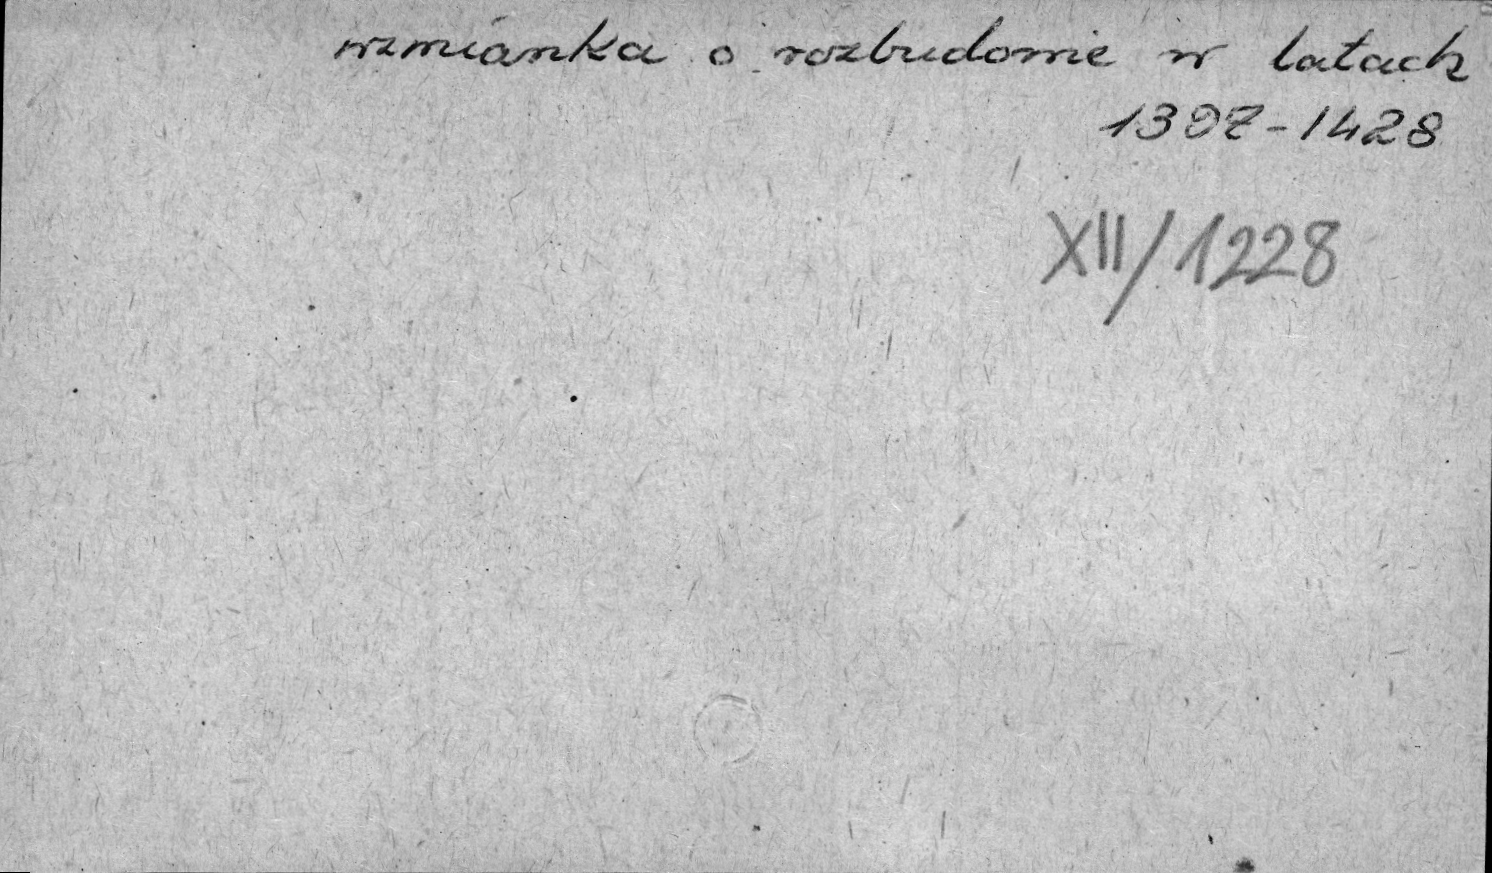 wzmianka o rozbudowie w latach
1397-1428
XII/1228